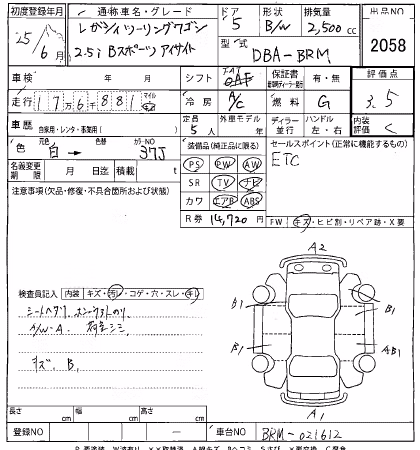 初度登録年月 通称車名・グレード ドア 形状 排気量 出品NO
25年 6月 レガシィツーリングワゴン 5 B/W 2,500cc
2.5i Bスポーツ アイサイト 型式 DBA-BRM 2058
車検 年 月 シフト FAT 保証書 有・無 評価点
走行 17万6千881 マイル km 冷房 A/C 燃料 G 3.5
車歴 自家用・レンタ・事業用( ) 定員 5人 外車モデル 年 ディーラー 並行 ハンドル 左・右 内装評価 C
色 元色 白 → 色替 カラーNO 37J 装備品(純正品に限る) セールスポイント(正常に機能するもの)
PS PW AW ETC
名義変更期限 月 日迄 積載 t SR TV ナビ
注意事項(欠品・修復・不具合箇所および状態) カワ エアB ABS
R券 14,720円 FW キズ・ヒビ割・リペア跡・X要
A2
検査員記入 内装 キズ・汚レ・コゲ・穴・スレ・キレ
B1 B1
A/W-A 荷室シミ
B1 AB1
キズ、B、
A1
長さ cm 幅 cm 高さ cm
登録NO ー 車台NO BRM-021612